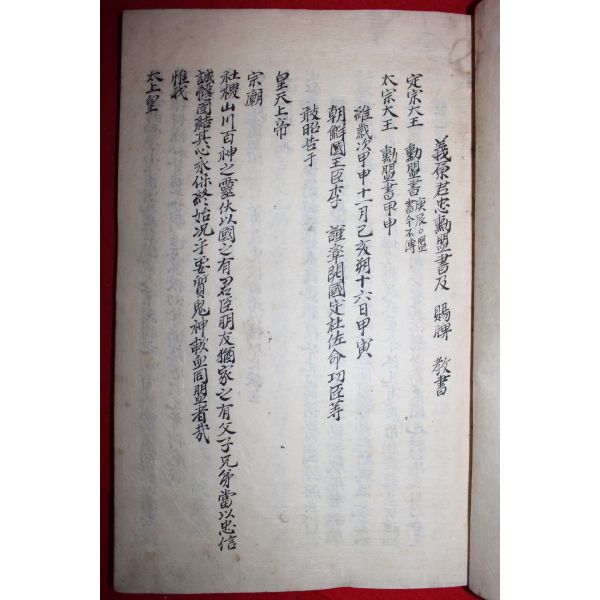 義原君忠勳盟書及 賜牌 敎書
定宗大王 勳盟書 庚辰〇盟書今不傳
太宗大王 勳盟書甲申
維歲次甲申十一月己亥朔十六日甲寅
朝鮮國王臣李 謹率開國定社佐命功臣等
敢昭告于
皇天上帝
宗廟
社稷山川百神之靈伏以國之有君臣朋友猶家之有父子兄弟當以忠信
誠慤固結其心永保終始況乎要質鬼神歃血同盟者哉
惟我
太上皇